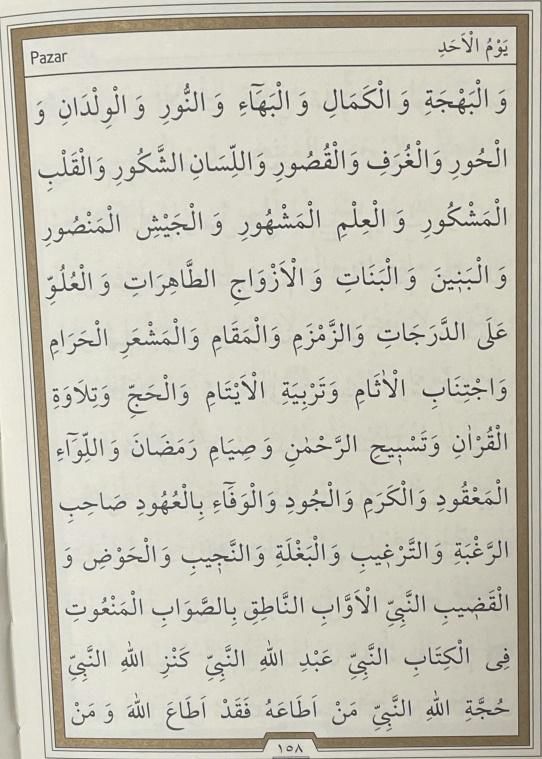 Pazar
يَوْمُ الْاَحَدِ
وَ الْبَهْجَةِ وَ الْكَمَالِ وَ الْبَهَٓاءِ وَ النُّورِ وَ الْوِلْدَانِ وَ
الْحُورِ وَالْغُرَفِ وَالْقُصُورِ وَاللِّسَانِ الشَّكُورِ وَالْقَلْبِ
الْمَشْكُورِ وَ الْعِلْمِ الْمَشْهُورِ وَ الْجَيْشِ الْمَنْصُورِ
وَ الْبَنٖينَ وَ الْبَنَاتِ وَ الْاَزْوَاجِ الطَّاهِرَاتِ وَ الْعُلُوِّ
عَلَى الدَّرَجَاتِ وَالزَّمْزَمِ وَالْمَقَامِ وَالْمَشْعَرِ الْحَرَامِ
وَاجْتِنَابِ الْاٰثَامِ وَتَرْبِيَةِ الْاَيْتَامِ وَالْحَجِّ وَتِلَاوَةِ
الْقُرْاٰنِ وَتَسْبٖيحِ الرَّحْمٰنِ وَ صِيَامِ رَمَضَانَ وَ اللِّوَٓاءِ
الْمَعْقُودِ وَالْكَرَمِ وَالْجُودِ وَالْوَفَٓاءِ بِالْعُهُودِ صَاحِبِ
الرَّغْبَةِ وَ التَّرْغٖيبِ وَالْبَغْلَةِ وَالنَّجٖيبِ وَالْحَوْضِ وَ
الْقَضٖيبِ النَّبِيِّ الْاَوَّابِ النَّاطِقِ بِالصَّوَابِ الْمَنْعُوتِ
فِى الْكِتَابِ النَّبِيِّ عَبْدِ اللهِ النَّبِيِّ كَنْزِ اللهِ النَّبِيِّ
حُجَّةِ اللهِ النَّبِيِّ مَنْ اَطَاعَهُ فَقَدْ اَطَاعَ اللهَ وَ مَنْ
١٥٨